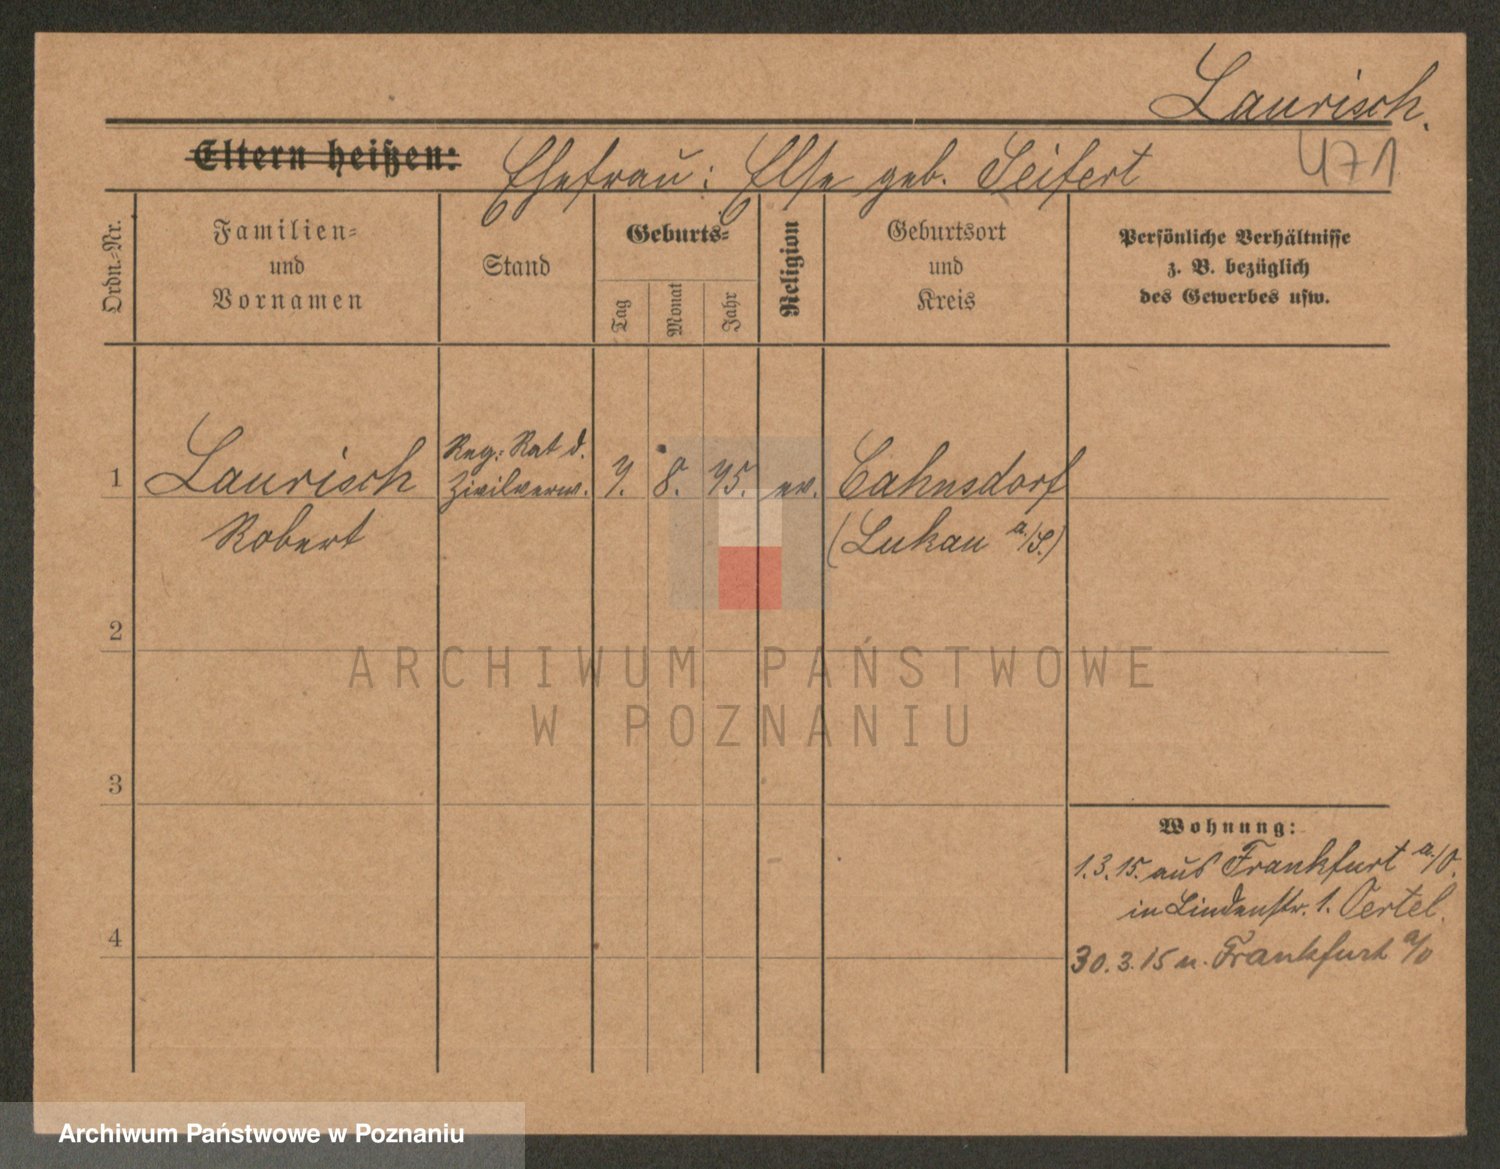 Laurisch.
471
Eltern heißen: Ehefrau: Else geb. Seifert
Ordn.-Nr.
Familien-
und
Vornamen
Stand
Geburts-
Tag
Monat
Jahr
Religion
Geburtsort
und
Kreis
Persönliche Verhältnisse
z. B. bezüglich
des Gewerbes usw.
1 Laurisch Reg: Rat d. Zivilverw. 7. 8. 75. ev. Cahnsdorf
Robert (Lukau a./S.)
2
ARCHIWUM PAŃSTWOWE
W POZNANIU
3
Wohnung:
1.3.15. aus Frankfurt a./O.
in Lindenstr. 1. Oertel.
4
30.3.15 n. Frankfurt a/O
Archiwum Państwowe w Poznaniu